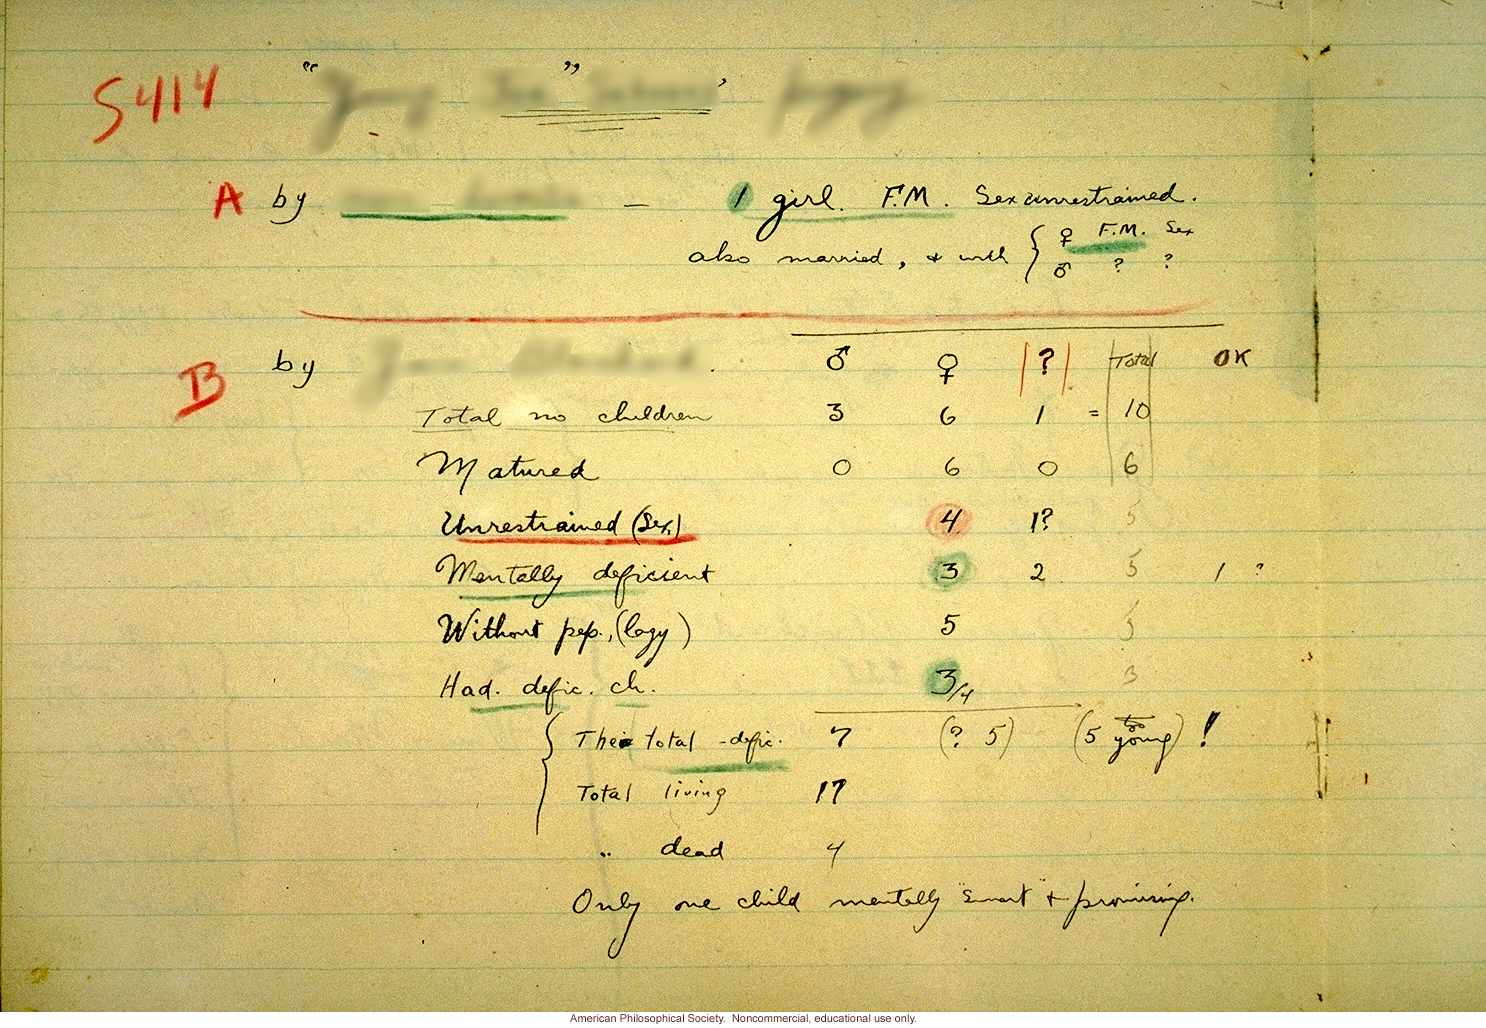 S414 " " '
A by — 1 girl. F.M. Sex unrestrained.
also married, & with { ♀ F.M. Sex
♂ ? ?
B by . ♂ ♀ |?| Total OK
Total no children 3 6 1 = 10
Matured 0 6 0 6
Unrestrained (Sex) 4 1? 5
Mentally deficient 3 2 5 1 ?
Without pep., (lazy) 5 5
Had. defic. ch. 3/4 3
{ Their total -defic. 7 (? 5) (5 too young) !
Total living 17
" dead 4
Only one child mentally "smart" & promising.
American Philosophical Society. Noncommercial, educational use only.